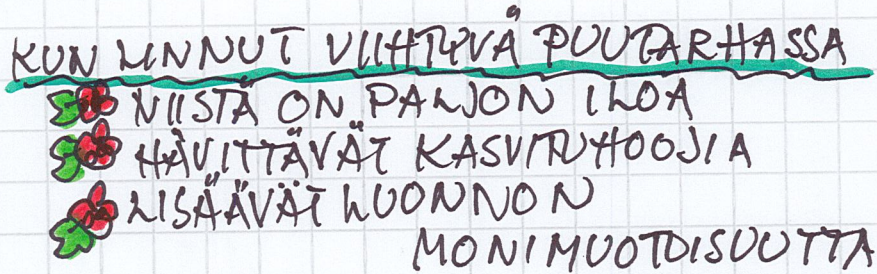 KUN LINNUT VIIHTYVÄ PUUTARHASSA
NIISTÄ ON PALJON ILOA
HÄVITTÄVÄT KASVITUHOOJIA
LISÄÄVÄT LUONNON
MONIMUOTOISUUTTA